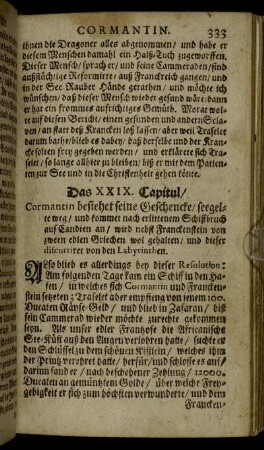 CORMANTIN. 333
ihnen die Dragoner alles abgenommen / und habe er
diesem Menschen damahl ein Hals-Tuch zugeworffen.
Dieser Mensch / sprach er / und seine Cammeraden / sind
auffrüchtige Reformirte / auß Franckreich gangen / und
in der See Rauber Hände gerathen / und möchte ich
wünschen / daß dieser Mensch wieder gesund wäre / dann
er hat ein frommes auffrichtiges Gemüt. Morat wol-
te auf diesen Bericht / einen gesunden und andern Scla-
ven / an statt deß Krancken loß lassen / aber weil Trafelet
darum bathe / blieb es dabey / daß derselbe und der Kran-
cke solten frey gegeben werden / und erklärete sich Tra-
felet / so lange allhier zu bleiben / biß er mit dem Patien-
ten zur See und in die Christenheit gehen könte.
Das XXIX. Capitul /
Cormantin besiehet seine Geschencke / seegel-
te weg / und kommet nach erlittenem Schiffbruch
auf Candien an / wird nebst Franckenstein von
zween edlen Griechen wol gehalten / und dieser
discuriret von den Labyrinthen.
Also blieb es allerdings bey dieser Resolution:
Am folgenden Tage kam ein Schiff in den Ha-
fen / in welches sich Cormantin und Francken-
stein setzeten; Trafelet aber empfieng von jenem 100.
Ducaten Räyse-Geld / und blieb in Zafaron / biß
sein Cammerad wieder möchte zurechte gekommen
seyn. Als unser edler Frantzose die Africanische
See-Küst auß den Augen verlohren hatte / suchte er
den Schlüssel zu dem schönen Kistlein / welches ihm
der Printz verehret hatte / herfür / und schlosse es auf /
darinn fand er / nach beschehener Zehlung / 12000.
Ducaten an gemüntztem Golde / über welche Frey-
gebigkeit er sich zum höchsten verwunderte / und dem
Francken-